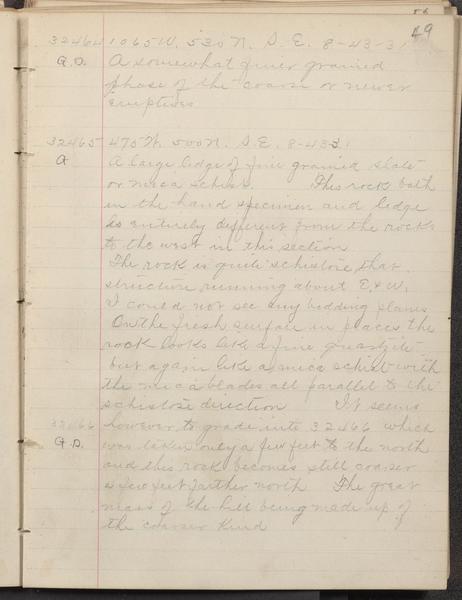 49
32464 1065 W. 530 N. S.E. 8-43-31
G.D. A somewhat finer grained
phase of the coarse or newer
eruptives
32465 475 W. 500 N. S.E. 8-43-31
A A large ledge of fine grained slate
or mica schist. This rock both
in the hand specimen and ledge
is entirely different from the rocks
to the west in this section
The rock is quite schistose that
struction running about E & W.
I could not see any bedding planes
On the fresh surface in places the
rock looks like a fine quartzite
but again like a mica schist with
the mica blades all parallel to the
schistose direction It seems
32466 however to grade into 32466 which
G.D. was taken only a few feet to the north
and this rock becomes still coarser
a few feet farther north The great
mass of the hill being made up of
the coarser kind